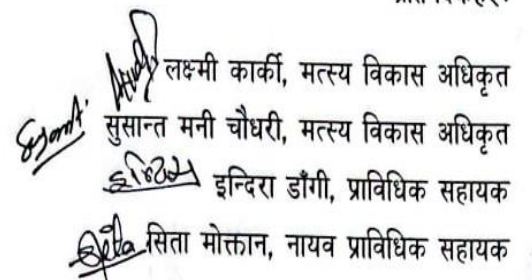 लक्ष्मी कार्की, मत्स्य विकास अधिकृत
सुसान्त मनी चौधरी, मत्स्य विकास अधिकृत
इन्दिरा डाँगी, प्राविधिक सहायक
सिता मोक्तान, नायव प्राविधिक सहायक